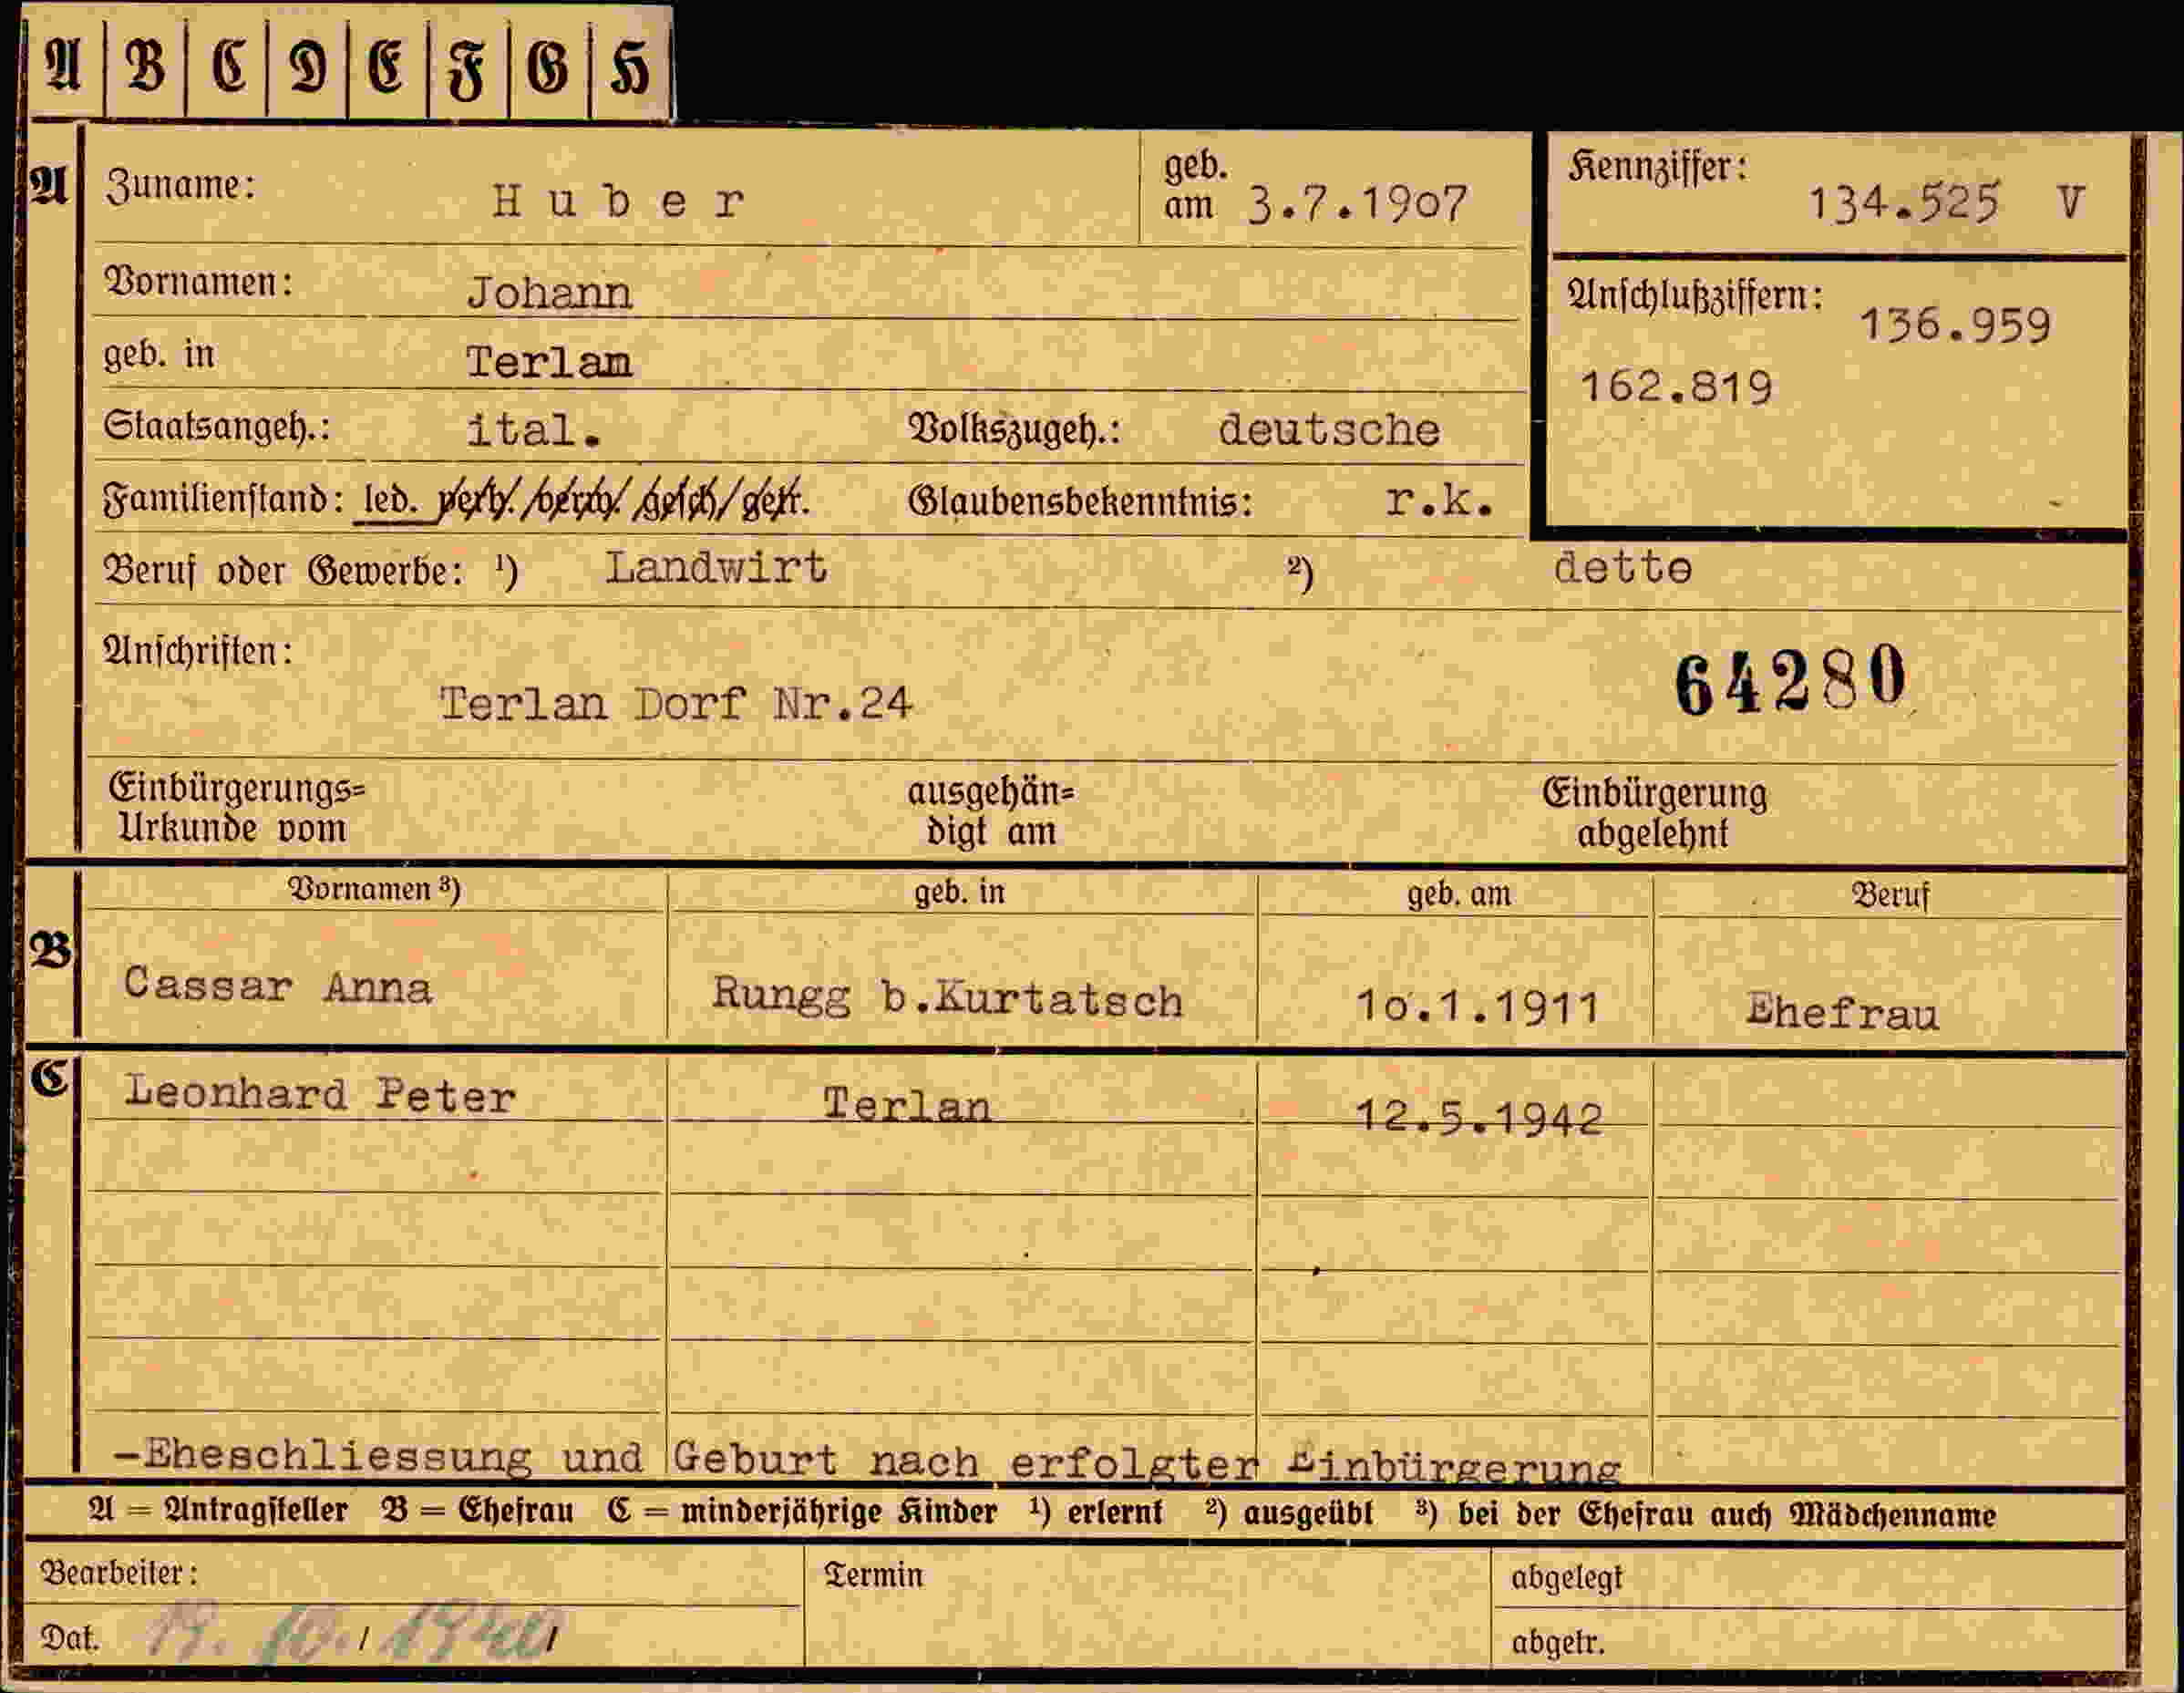 A B C D E F G H
A Zuname: Huber geb. am 3.7.1907 Kennziffer: 134.525 V
Vornamen: Johann Anschlußziffern: 136.959
geb. in Terlan 162.819
Staatsangeh.: ital. Volkszugeh.: deutsche
Familienstand: led. verh./verw./gesch/getr. Glaubensbekenntnis: r.k.
Beruf oder Gewerbe: ¹) Landwirt ²) dette
Anschriften: 64280
Terlan Dorf Nr.24
Einbürgerungs= ausgehän= Einbürgerung
Urkunde vom digt am abgelehnt
Vornamen ³) geb. in geb. am Beruf
B Cassar Anna Rungg b.Kurtatsch 1o.1.1911 Ehefrau
C Leonhard Peter Terlan 12.5.1942
-Eheschliessung und Geburt nach erfolgter Einbürgerung
A = Antragsteller B = Ehefrau C = minderjährige Kinder ¹) erlernt ²) ausgeübt ³) bei der Ehefrau auch Mädchenname
Bearbeiter: Termin abgelegt
Dat. abgetr.